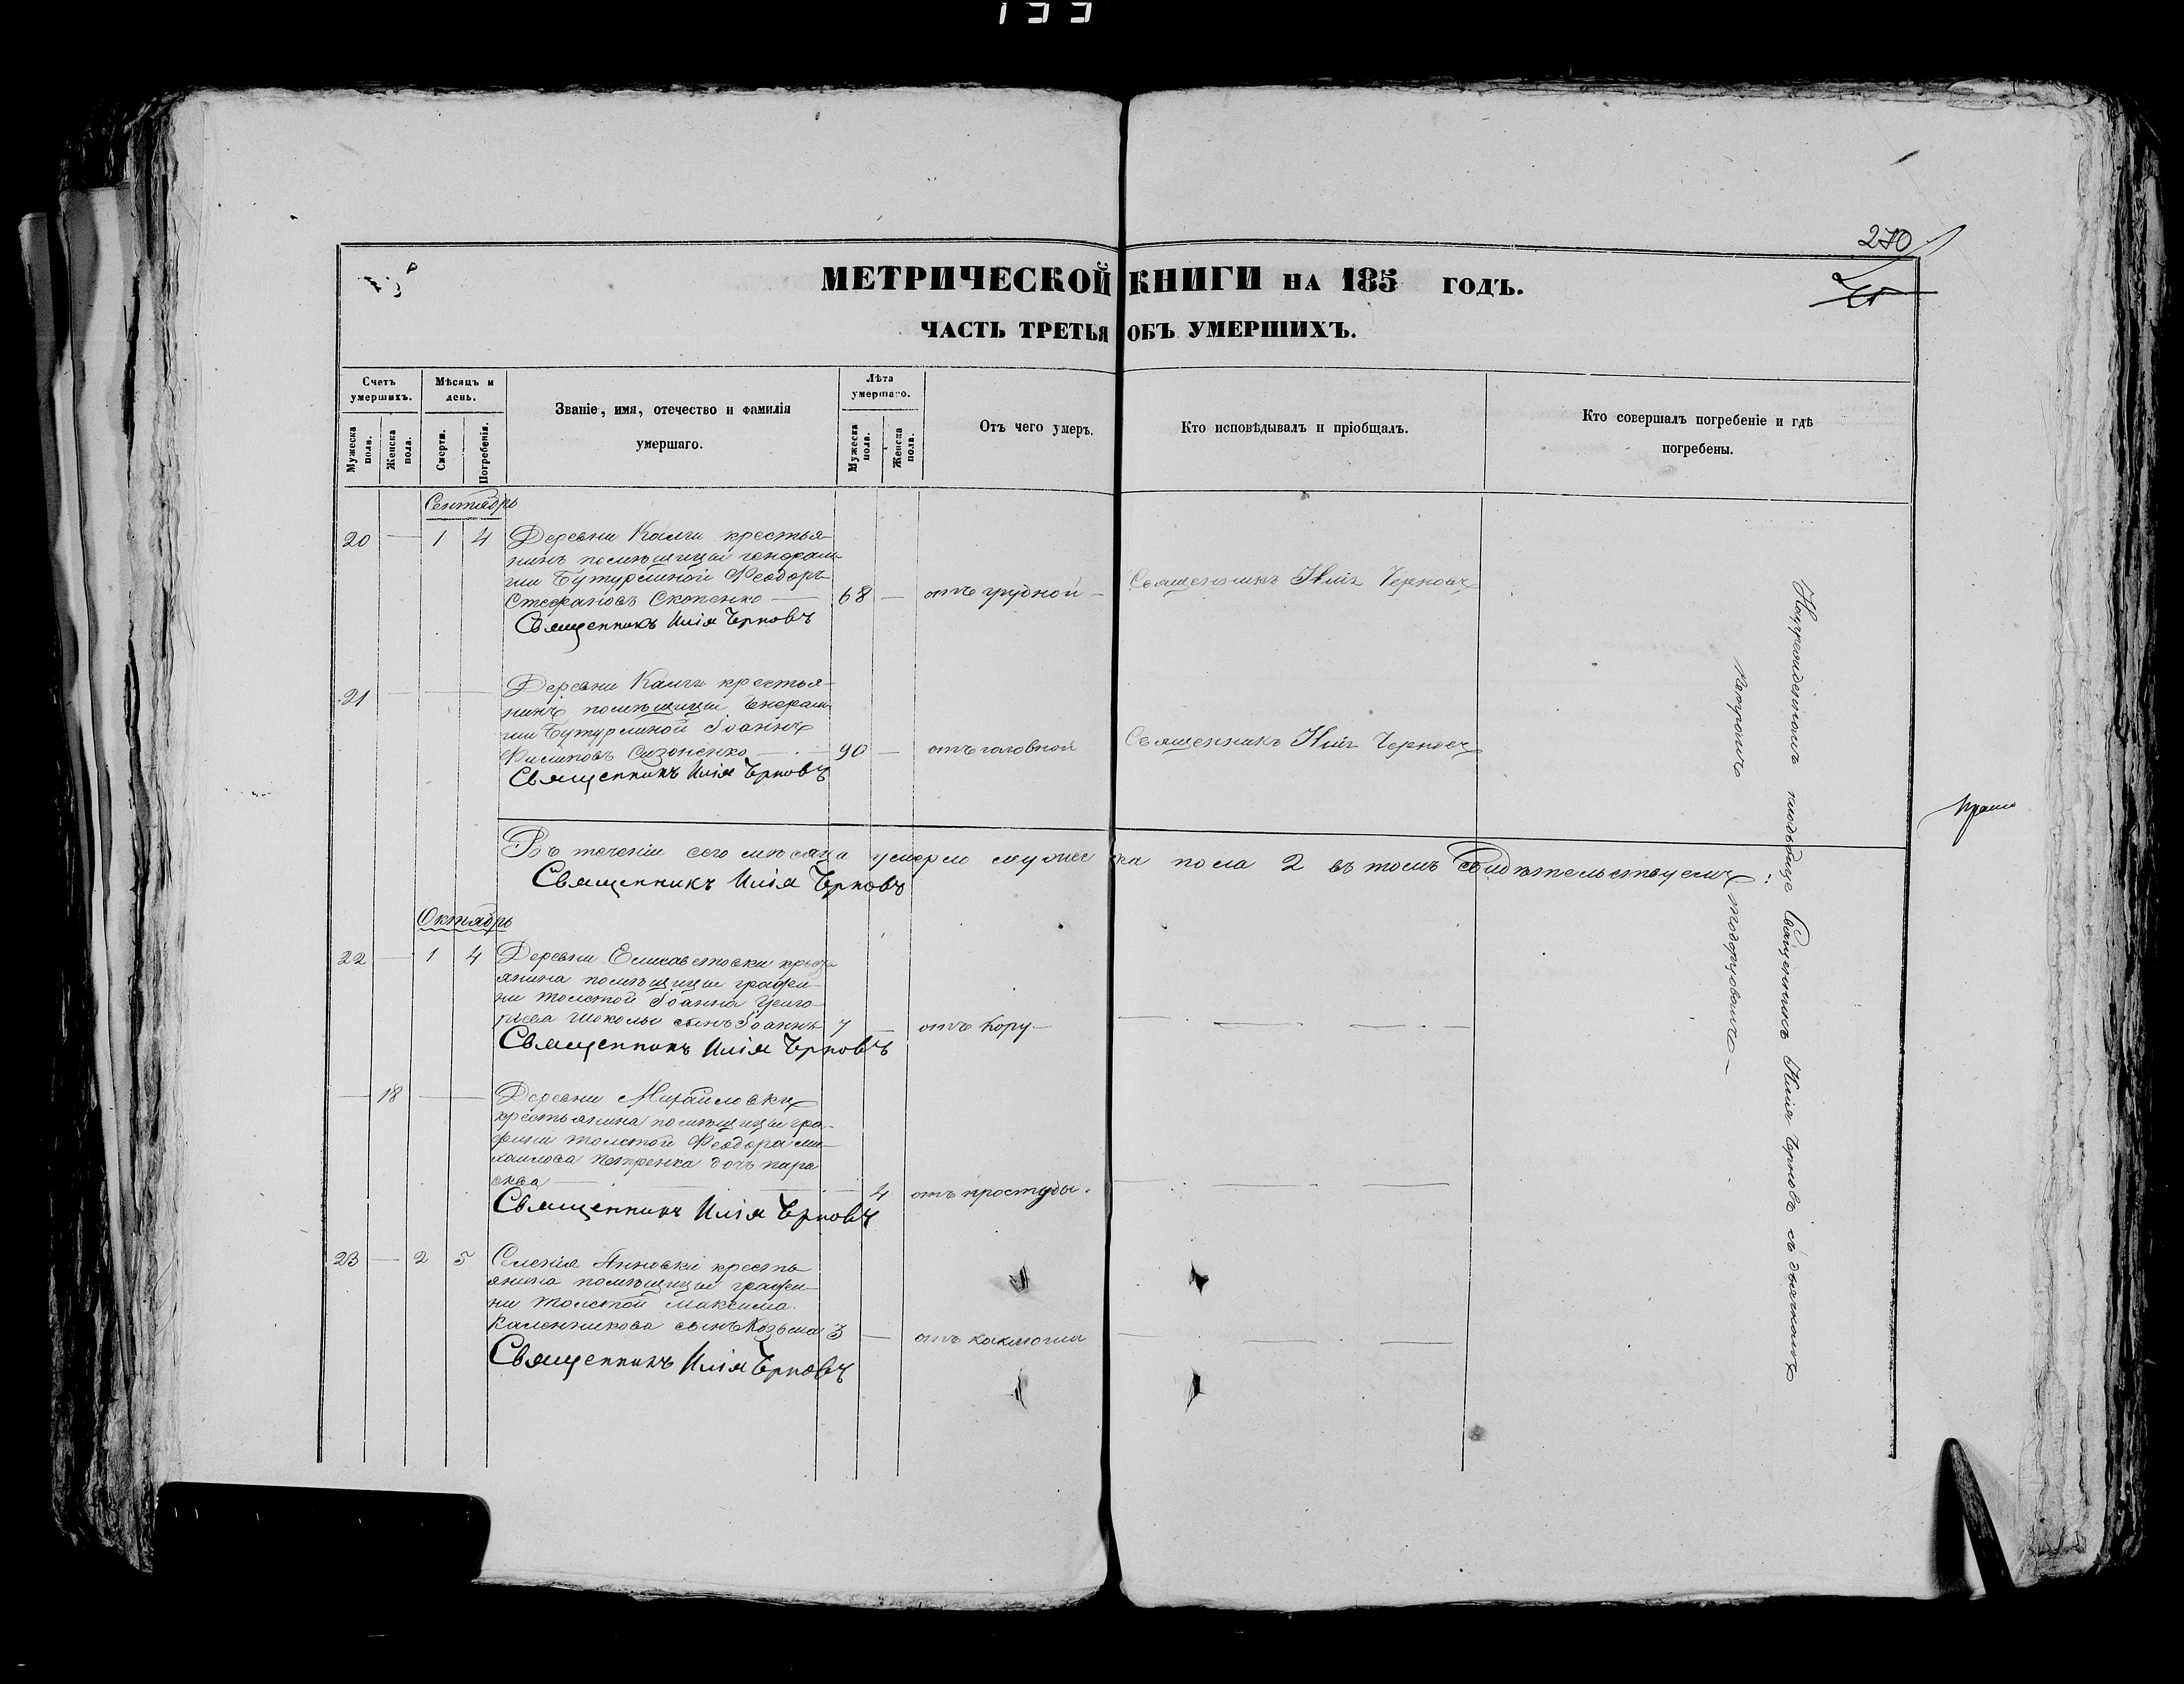 270
МЕТРИЧЕСКОЙ КНИГИ НА 185 ГОДЪ.
ЧАСТЬ ТРЕТЬЯ ОБЪ УМЕРШИХЪ.
Счетъ умершихъ.
Мужеска пола.
Женска пола.
Мѣсяцъ и день.
Смерти.
Погребенія.
Званіе, имя, отечество и фамилія
умершаго.
Лѣта умершаго.
Мужеска пола.
Женска пола.
Отъ чего умеръ.
Кто исповѣдывалъ и пріобщалъ.
Кто совершалъ погребеніе и гдѣ
погребены.
Сентябрь
20 — 1 4 Деревни Калги крестья-
нинъ помѣщицы генерал-
ши Бутурлиной Ѳеодоръ
Стефановъ Скопенко — 68 — отъ грудной — Священникъ Илія Черновъ
Священникъ Илія Черновъ
21 — Деревни Калги крестья-
нинъ помѣщицы генерал-
ши Бутурлиной Іоаннъ
Филиповъ Сизоненко — 90 — отъ головной Священникъ Илія Черновъ
Священникъ Илія Черновъ
Въ теченіи сего мѣсяца умерло мужеска пола 2 въ томъ свидѣтельствуемъ:
Священникъ Илія Черновъ
Октябрь
22 — 1 4 Деревни Елисаветовки кресть
янина помѣщицы графи-
ни Толстой Іоанна
сынъ Іоаннъ 7 — отъ кору —
Священникъ Илія Черновъ
— 18 — Деревни Михайловки
крестьянина помѣщицы гра-
фини Толстой Ѳеодора Ми-
хаилова Петренка дочь Пара
сква — 4 отъ простуды.
Священникъ Илія Черновъ
23 — 2 5 Селенія Анновки кресть
янина помѣщицы графи-
ни Толстой Максима
Каленникова сынъ Козьма 3 — отъ коклюша
Священникъ Илія Черновъ
Священникъ Илія Черновъ съ дьячкомъ
Петромъ